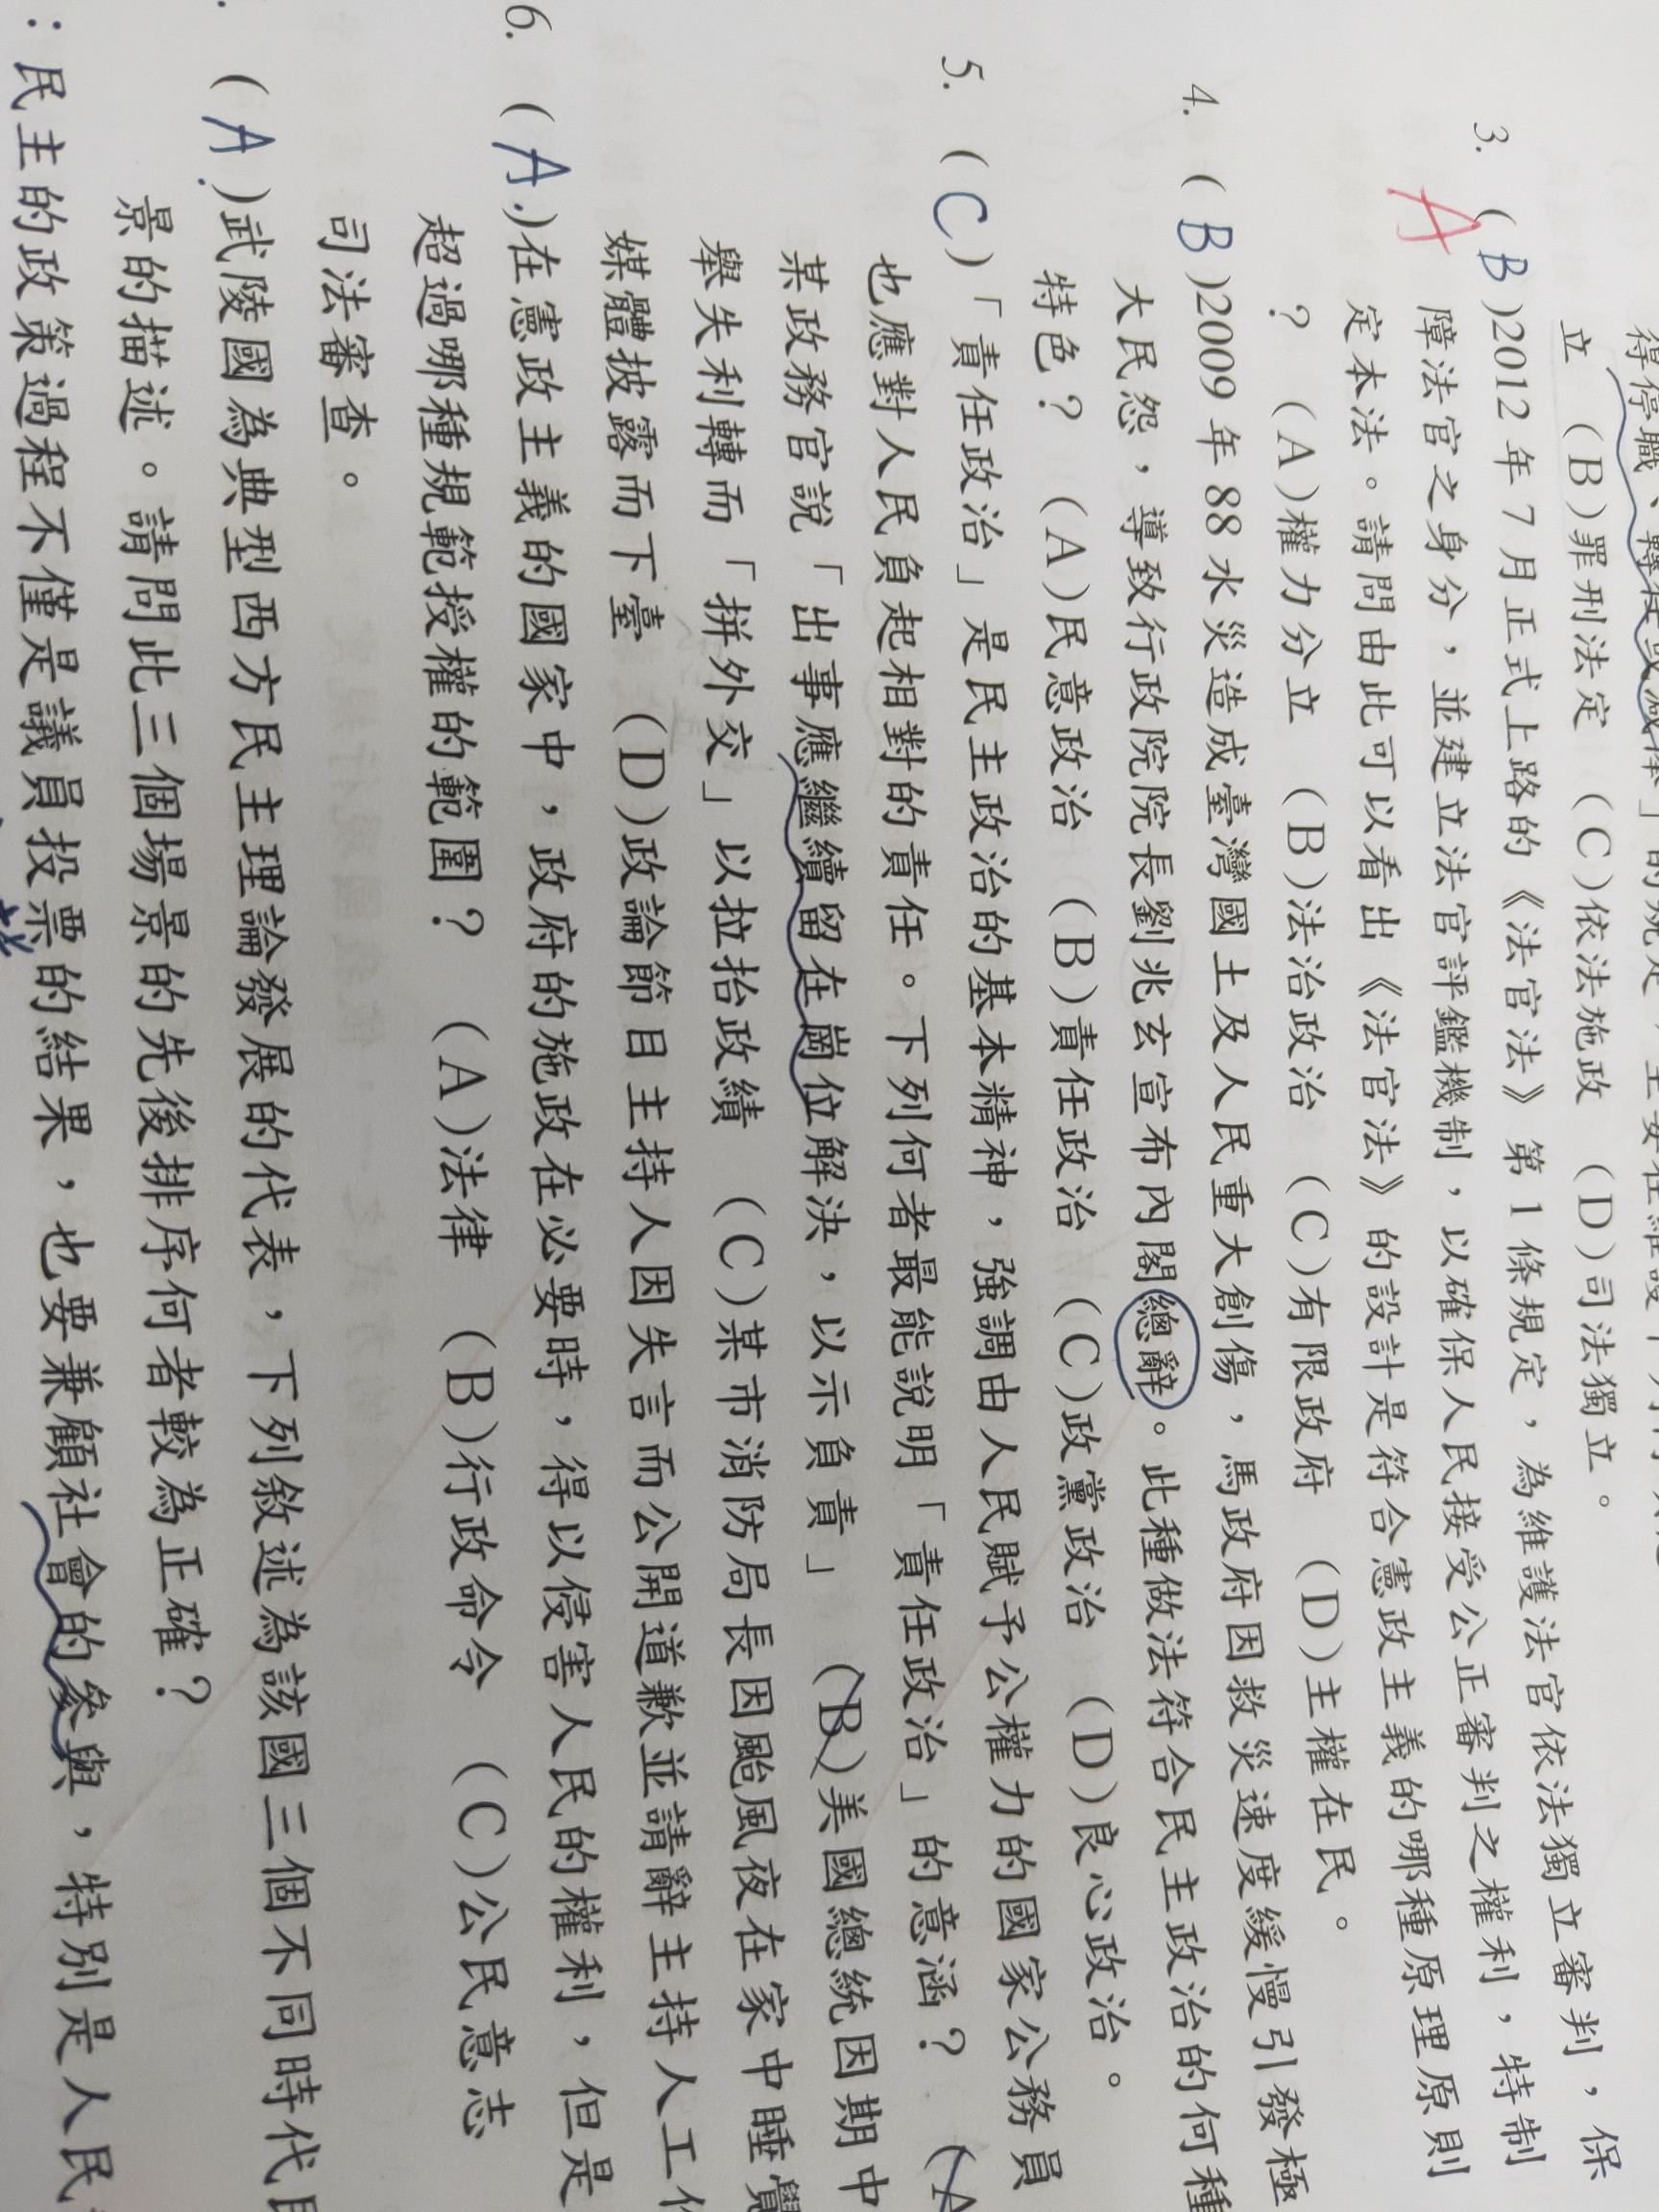 得停職、轉任或減俸」的規定，主要在維護
立 (B)罪刑法定 (C)依法施政 (D)司法獨立。
3. (B)2012 年 7 月正式上路的《法官法》第 1 條規定，為維護法官依法獨立審判，保
A 障法官之身分，並建立法官評鑑機制，以確保人民接受公正審判之權利，特制
定本法。請問由此可以看出《法官法》的設計是符合憲政主義的哪種原理原則
？ (A)權力分立 (B)法治政治 (C)有限政府 (D)主權在民。
4. (B)2009 年 88 水災造成臺灣國土及人民重大創傷，馬政府因救災速度緩慢引發極
大民怨，導致行政院院長劉兆玄宣布內閣總辭。此種做法符合民主政治的何種
特色？ (A)民意政治 (B)責任政治 (C)政黨政治 (D)良心政治。
5. (C)「責任政治」是民主政治的基本精神，強調由人民賦予公權力的國家公務員
也應對人民負起相對的責任。下列何者最能說明「責任政治」的意涵？ (A
某政務官說「出事應繼續留在崗位解決，以示負責」 (B)美國總統因期中
舉失利轉而「拼外交」以拉抬政績 (C)某市消防局長因颱風夜在家中睡覺
媒體披露而下臺 (D)政論節目主持人因失言而公開道歉並請辭主持人工作
6. (A.)在憲政主義的國家中，政府的施政在必要時，得以侵害人民的權利，但是
超過哪種規範授權的範圍？ (A)法律 (B)行政命令 (C)公民意志
司法審查。
. (A.)武陵國為典型西方民主理論發展的代表，下列敘述為該國三個不同時代
景的描述。請問此三個場景的先後排序何者較為正確？
：民主的政策過程不僅是議員投票的結果，也要兼顧社會的參與，特別是人民